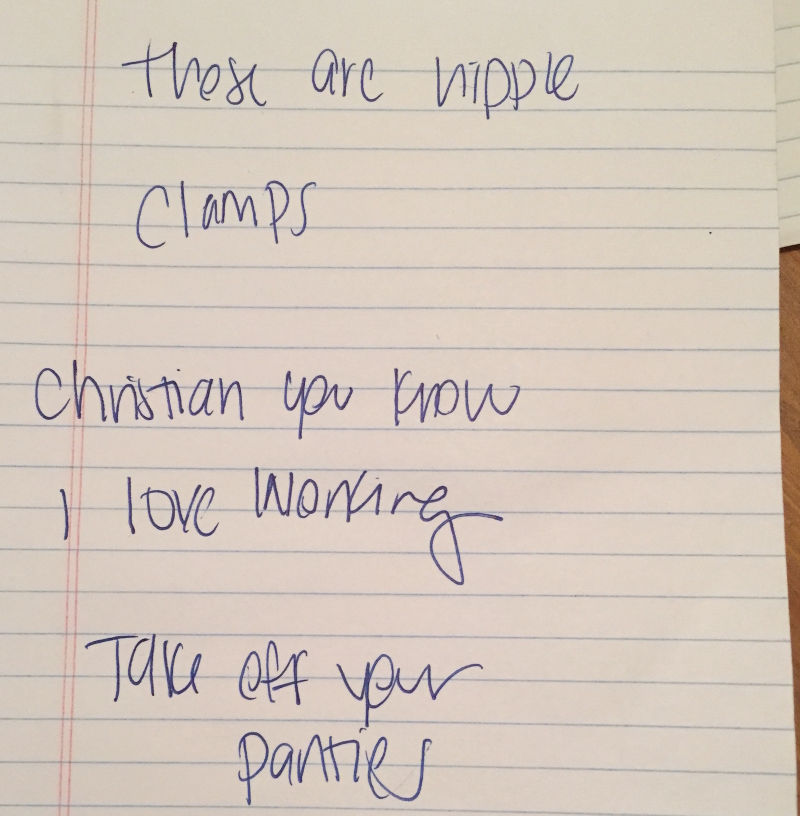 these are nipple
clamps
Christian you know
I love working
Take off your
panties